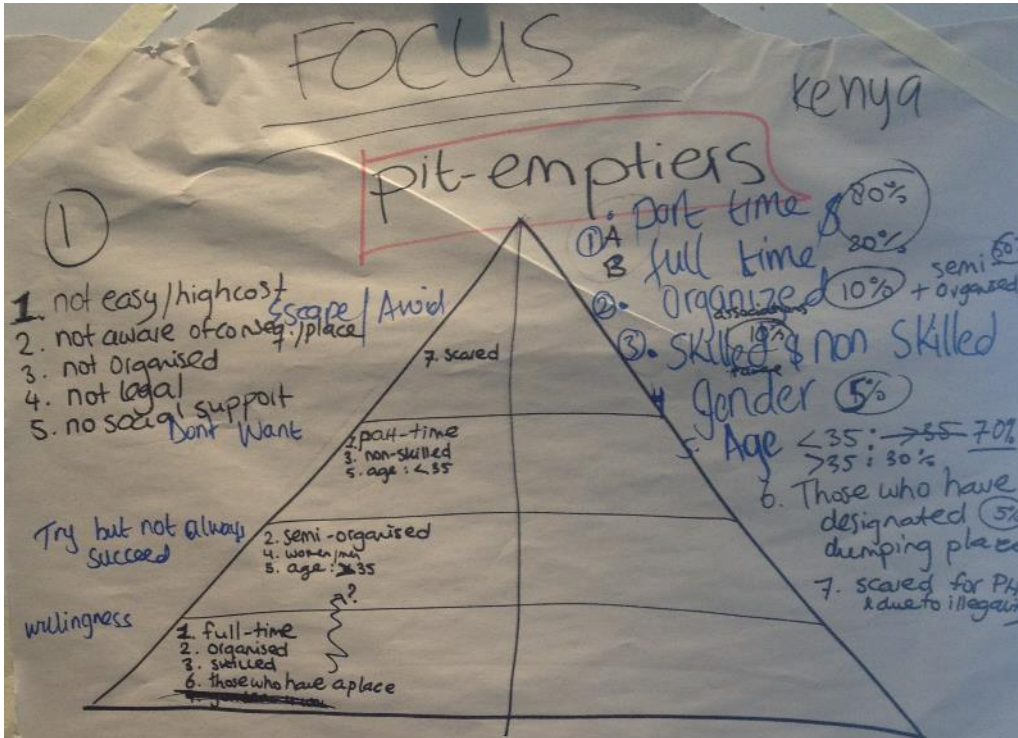 FOCUS
Kenya
pit-emptiers
1
1. not easy/high cost
2. not aware of conseq./place
3. not Organised
4. not legal
5. no social support
Escape/Avoid
Dont Want
Try but not always
succeed
willingness
7. scared
2. part-time
3. non-skilled
5. age: <35
2. semi-organised
4. women/men
5. age: 35
?
1. full-time
2. organised
3. skilled
6. those who have a place
1 A part time & 80%
B full time 20%
2. Organized 10% + semi
organised
associations
3. Skilled & non Skilled
10%
4 gender 5%
5. Age <35: >35 70%
>35: 30%
6. Those who have
designated 5%
dumping place
7. scared for
& due to